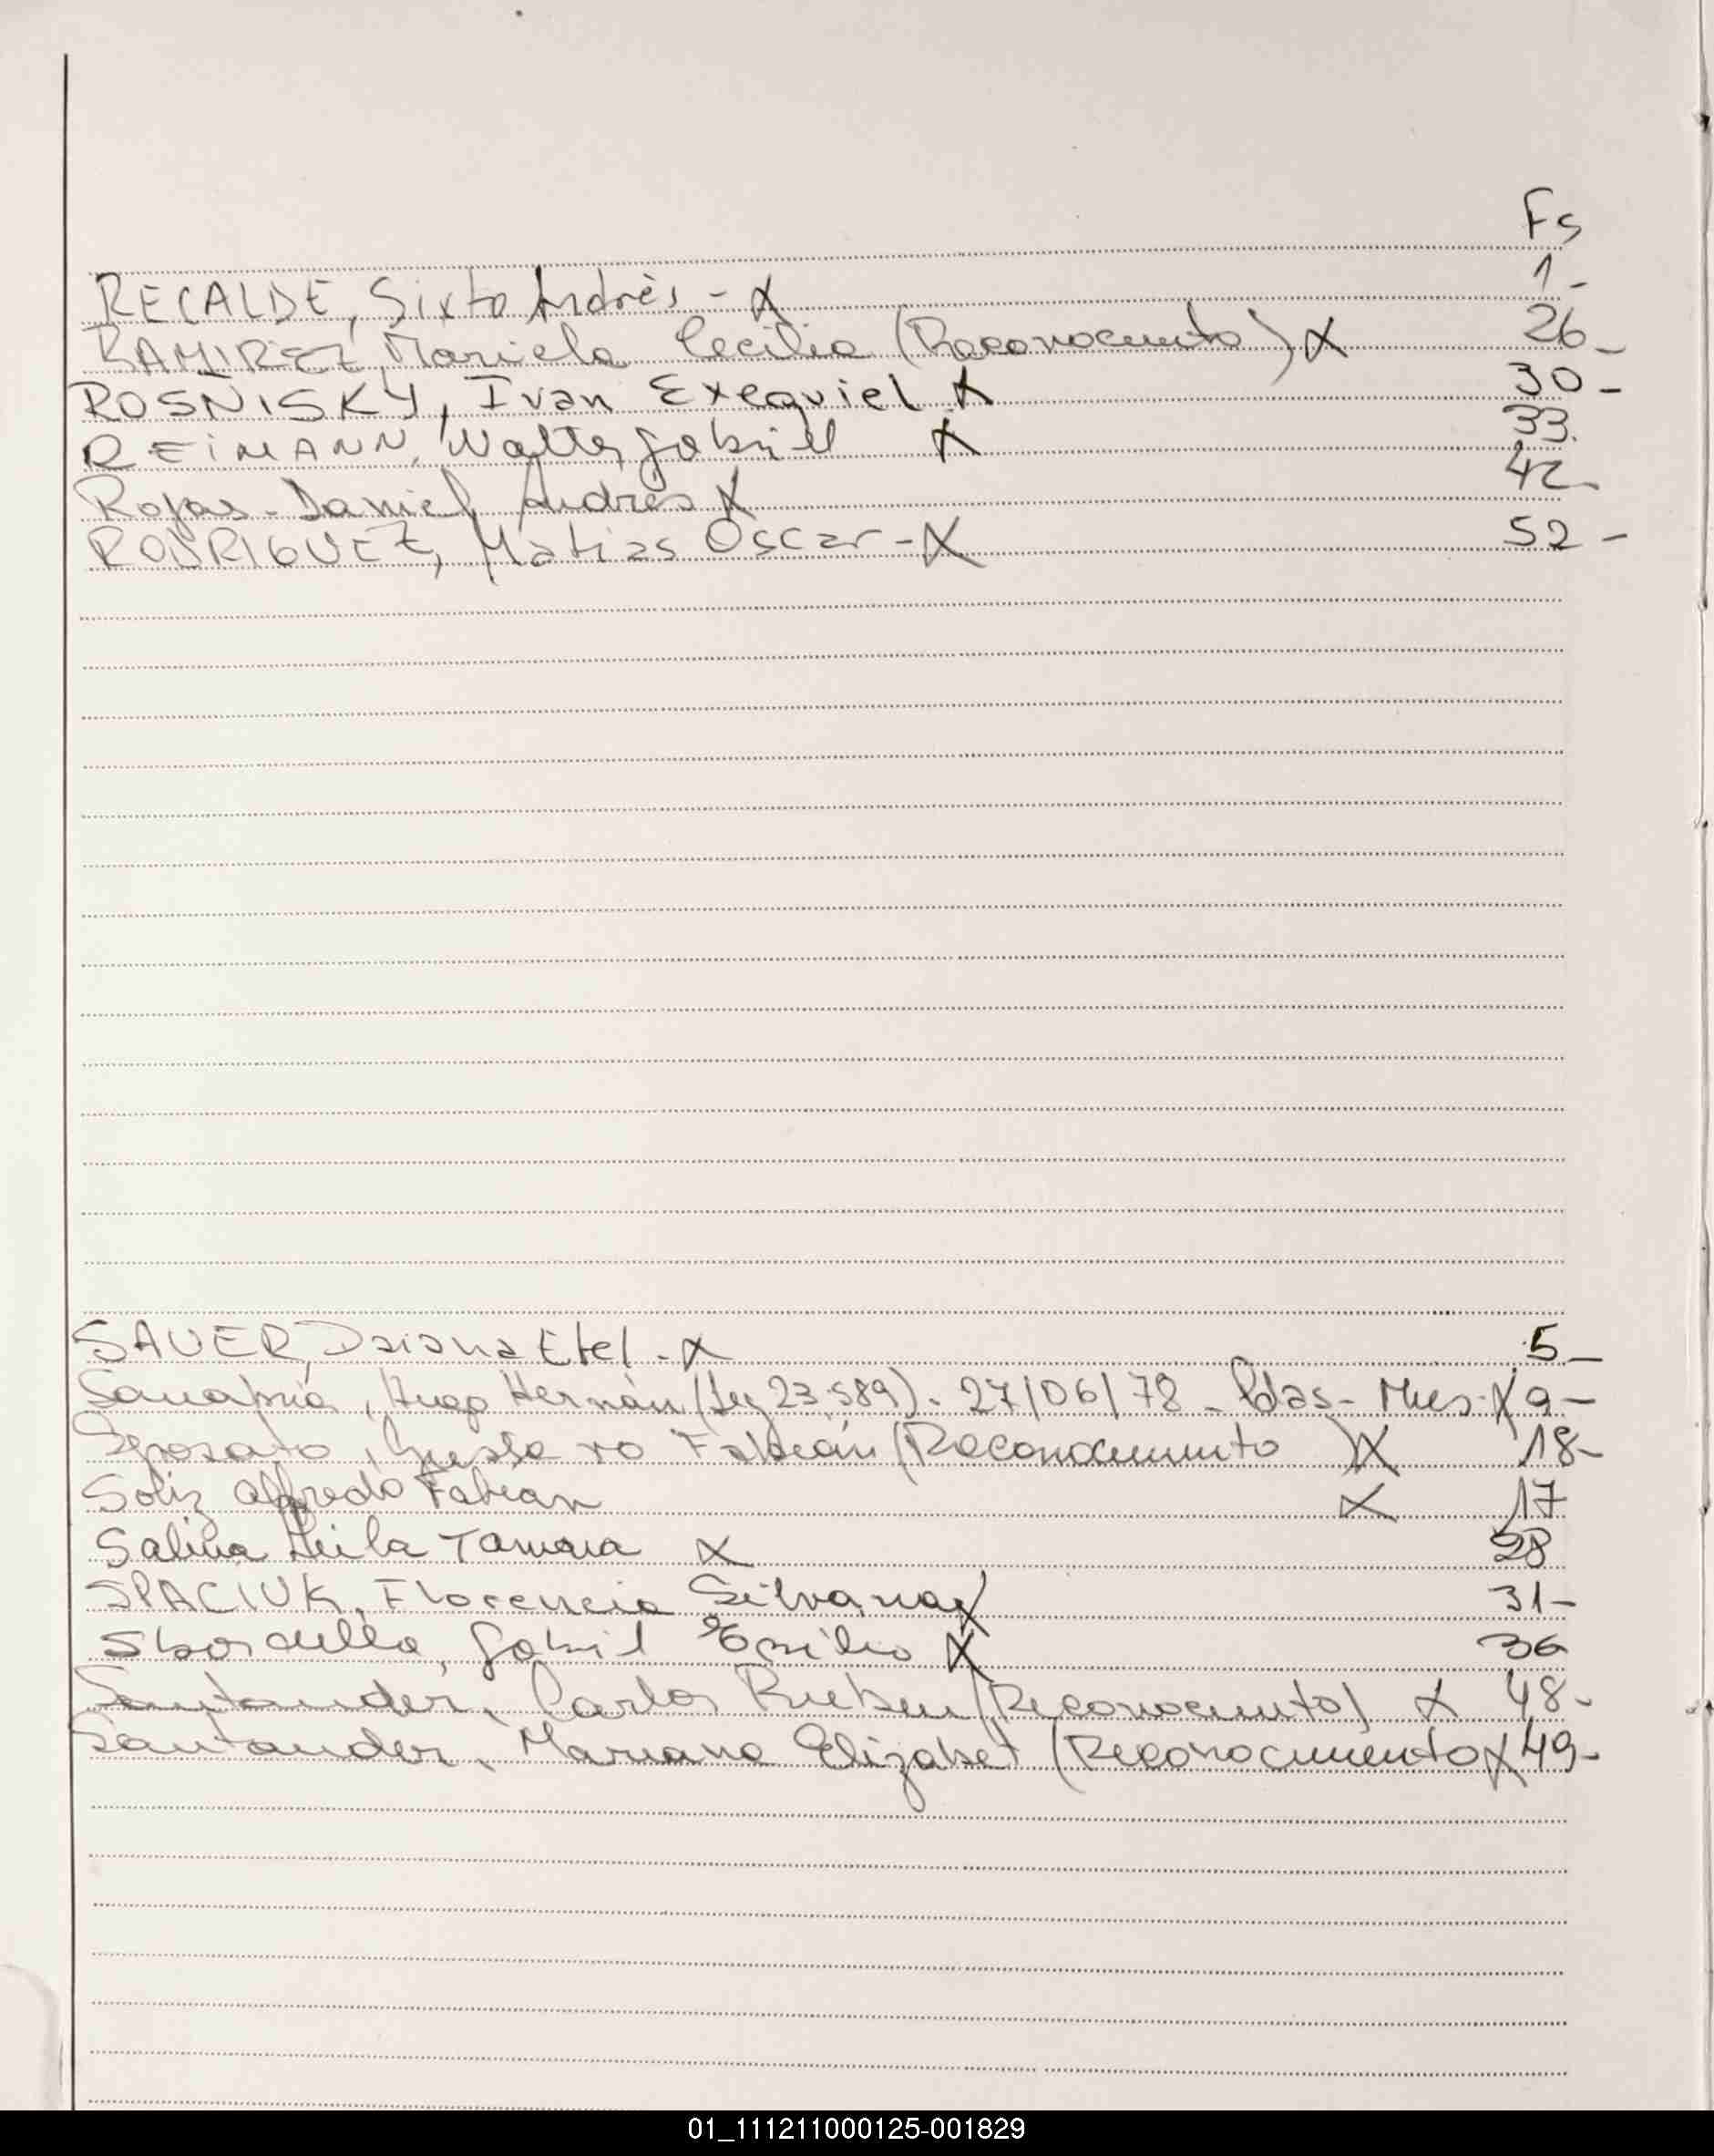 Fs
RECALDE, Sixto Andrès - X 1-
RAMIREZ, Mariela Cecilia (Reconocimiento) X 26-
ROSÑISKY, Ivan Exequiel X 30-
REIMANN, Walter Gabriel X 33.
Rojas - Daniel Andrès X 42-
RODRIGUEZ, Matias Oscar - X 52-
SAUER, Daiana Etel - X 5-
Sanabria, Hugo Hernán (Ley 23.589). 27/06/78 - Pdas- Mnes. X 9-
Sposato, Gustavo Fabián (Reconocimiento) X 18-
Soliz Alfredo Fabian X 17
Salina Leila Tamara X 28
SPACIUK, Florencia Silvana X 31-
Sbordella, Gabriel Emilio X 36
Santander, Carlos Ruben (Reconocimiento) X 48-
Santander, Mariana Elizabet (Reconocimiento X 49-
01_111211000125-001829